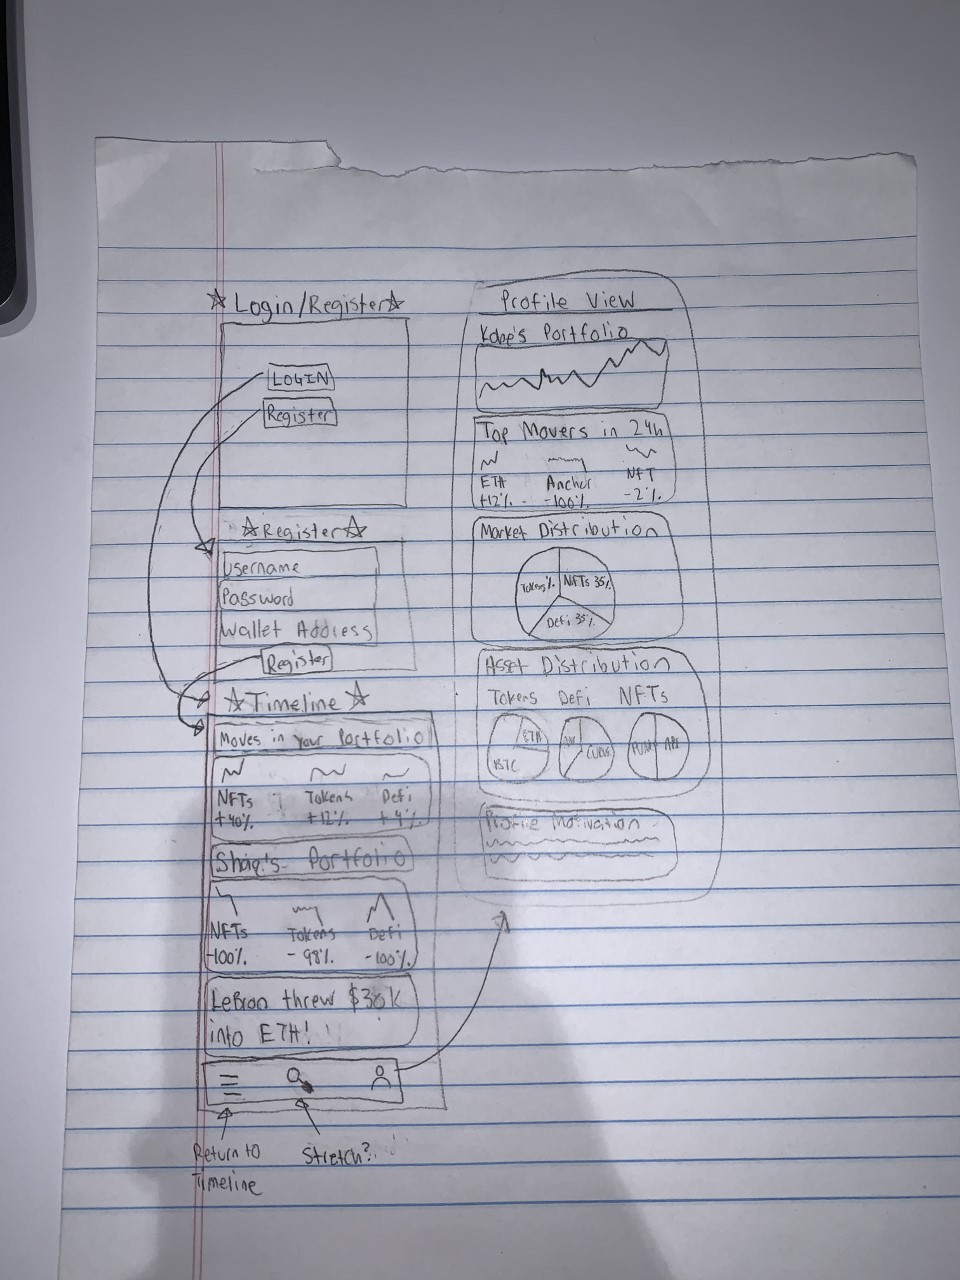 ☆ Login/Register ☆
LOGIN
Register
☆Register☆
Username
Password
Wallet Address
Register
☆Timeline☆
Moves in your Portfolio
NFTs Tokens Defi
+40% +12% +4%
Shaq's Portfolio
NFTs Tokens Defi
-100% -98% -100%
LeBron threw $30K
into ETH!
Return to
Timeline
Stretch?
Profile View
Kobe's Portfolio
Top Movers in 24h
ETH Anchor NFT
+12% -100% -2%
Market Distribution
Tokens% NFTs 35%
Defi 35%
Asset Distribution
Tokens Defi NFTs
ETH
BTC
PUNK APE
Profile Motivation